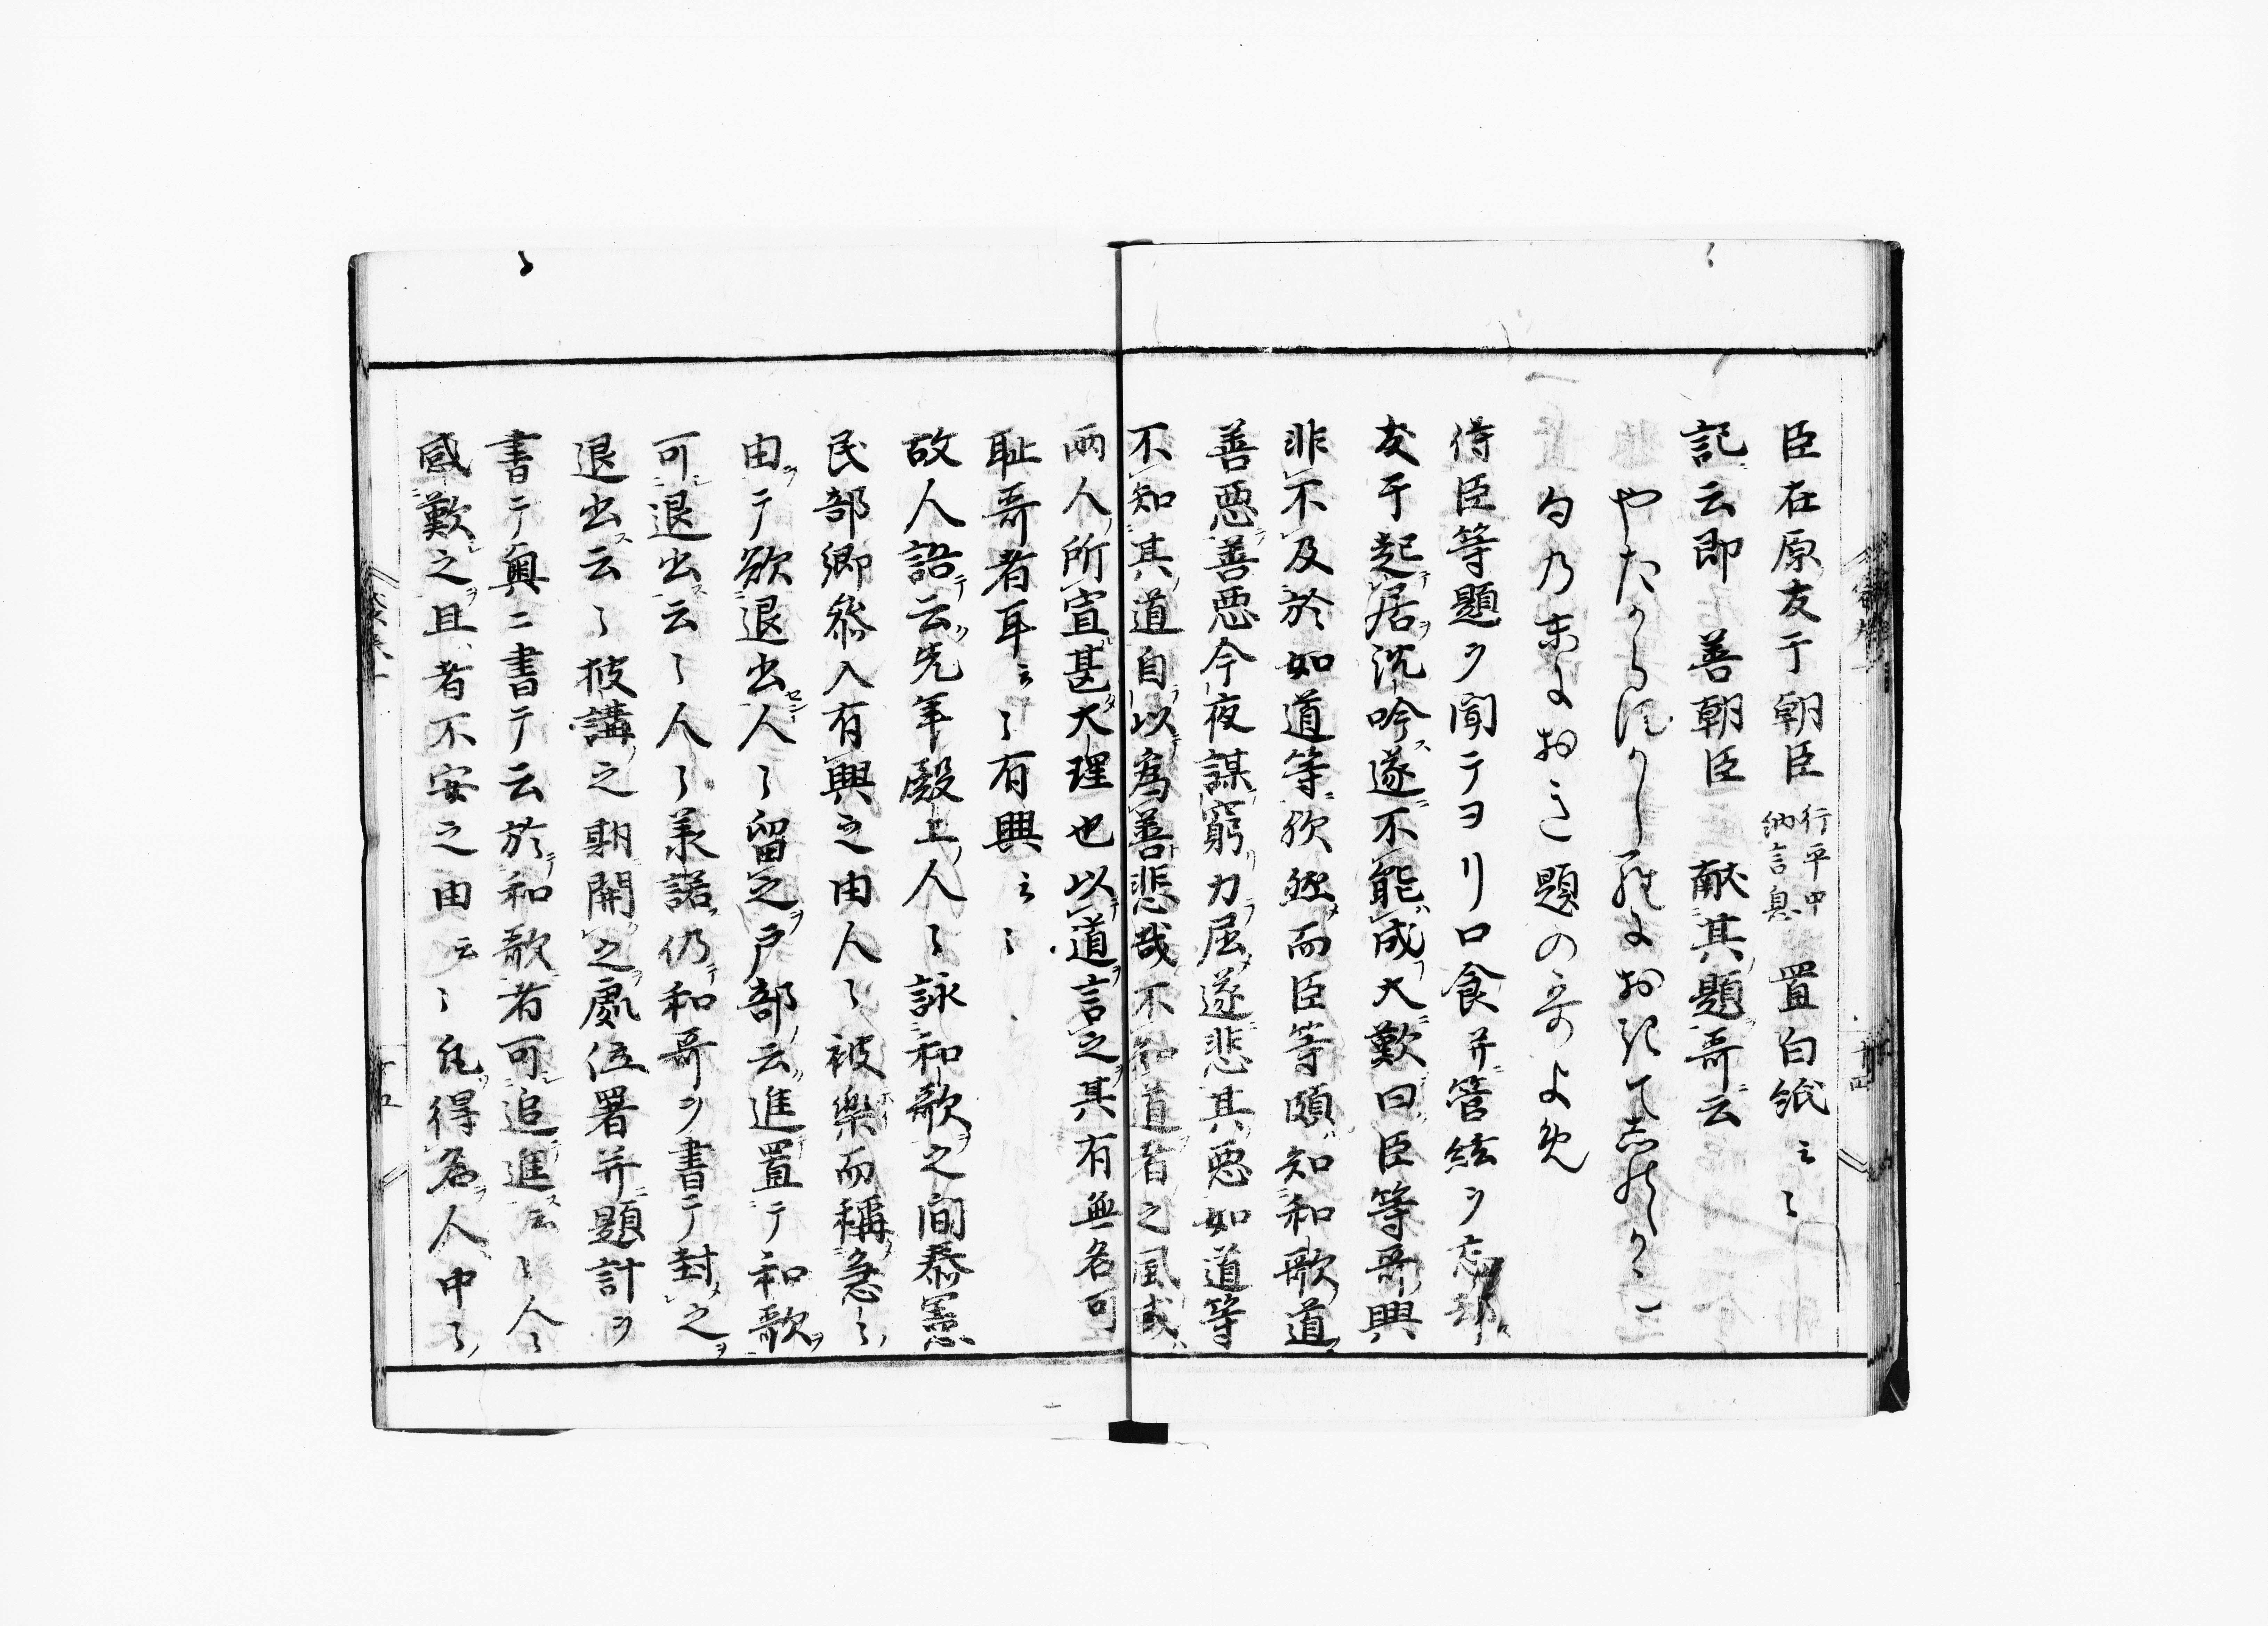 臣在原友于朝臣 行平中納言息 置白紙云〻
記云即 善朝臣 献其題哥云
やたからぬかし
匂乃末におきし題の哥のよめ
得臣等題ヲ聞テヨリ口食并管絃ヲ忘却
友于起居沈吟遂不能成大歎曰臣等哥興
非不及於如道等欤然而臣等頗知和歌道
善悪善悪今夜謀窮力屈遂悲其悪如道等
不知其道自以為善悲哉不知道者之風或
両人所宣甚大理也以道言之其有無名可
耻哥者耳云〻有興云〻
故人語云先年殿上人〻詠和歌之間泰憲
民部卿参入有興之由人〻被樂而稱急〻
由テ欲退出人〻留之戸部云進置テ和歌
可退出云〻人〻承諾仍和哥ヲ書テ封之
退出云〻披講之期開之處位署并題計ヲ
書テ奥ニ書テ云於和歌者可追進云〻人〻
感歎之且者不安之由云〻凡得名人中〻